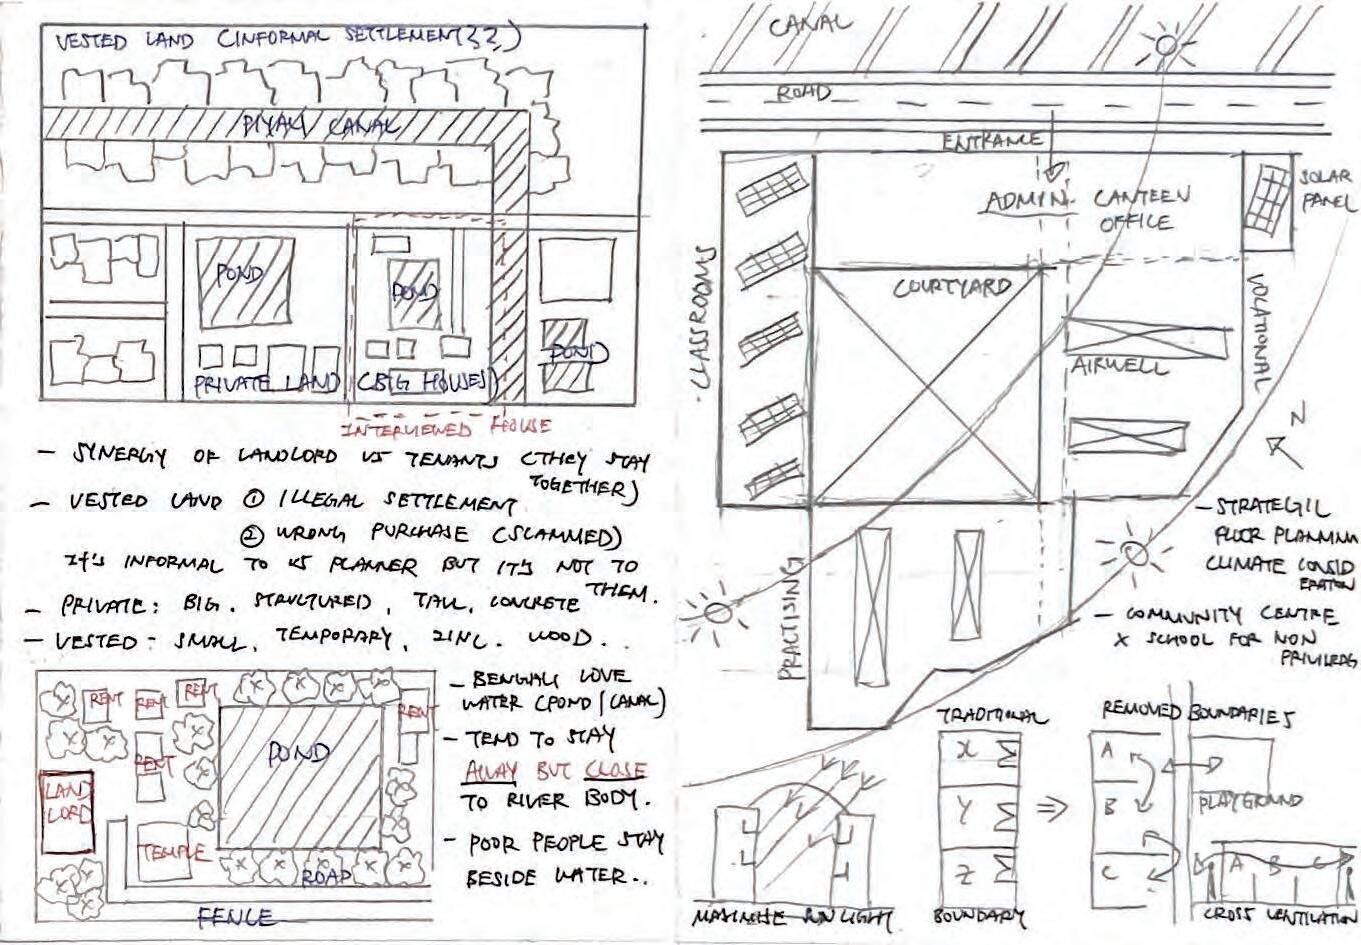 VESTED LAND (INFORMAL SETTLEMENT??)
PIYALI CANAL
POND
POND
POND
PRIVATE LAND (BIG HOUSES)
INTERVIEWED HOUSE
- SYNERGY OF LANDLORD VS TENANTS (THEY STAY
TOGETHER)
- VESTED LAND ① ILLEGAL SETTLEMENT
② WRONG PURCHASE (SCAMMED)
IT'S INFORMAL TO US PLANNER BUT IT'S NOT TO
THEM.
- PRIVATE: BIG. STRUCTURED, TALL, CONCRETE
- VESTED: SMALL, TEMPORARY, ZINC. WOOD..
RENT
RENT
RENT
RENT
RENT
POND
LAND
LORD
TEMPLE
ROAD
FENCE
- BENGALI LOVE
WATER (POND/CANAL)
- TEND TO STAY
AWAY BUT CLOSE
TO RIVER BODY.
- POOR PEOPLE STAY
BESIDE WATER..
CANAL
ROAD
ENTRANCE
ADMIN.
CANTEEN
OFFICE
SOLAR
PANEL
CLASSROOMS
COURTYARD
VOCATIONAL
AIRWELL
N
PRACTISING
- STRATEGIC
FLOOR PLANNING
CLIMATE CONSID
ERATION
- COMMUNITY CENTRE
X SCHOOL FOR NON
PRIVILEGED
MAXIMISE SUNLIGHT
TRADITIONAL
X
Y
Z
BOUNDARY
REMOVED BOUNDARIES
A
B
C
PLAYGROUND
A B C
CROSS VENTILATION